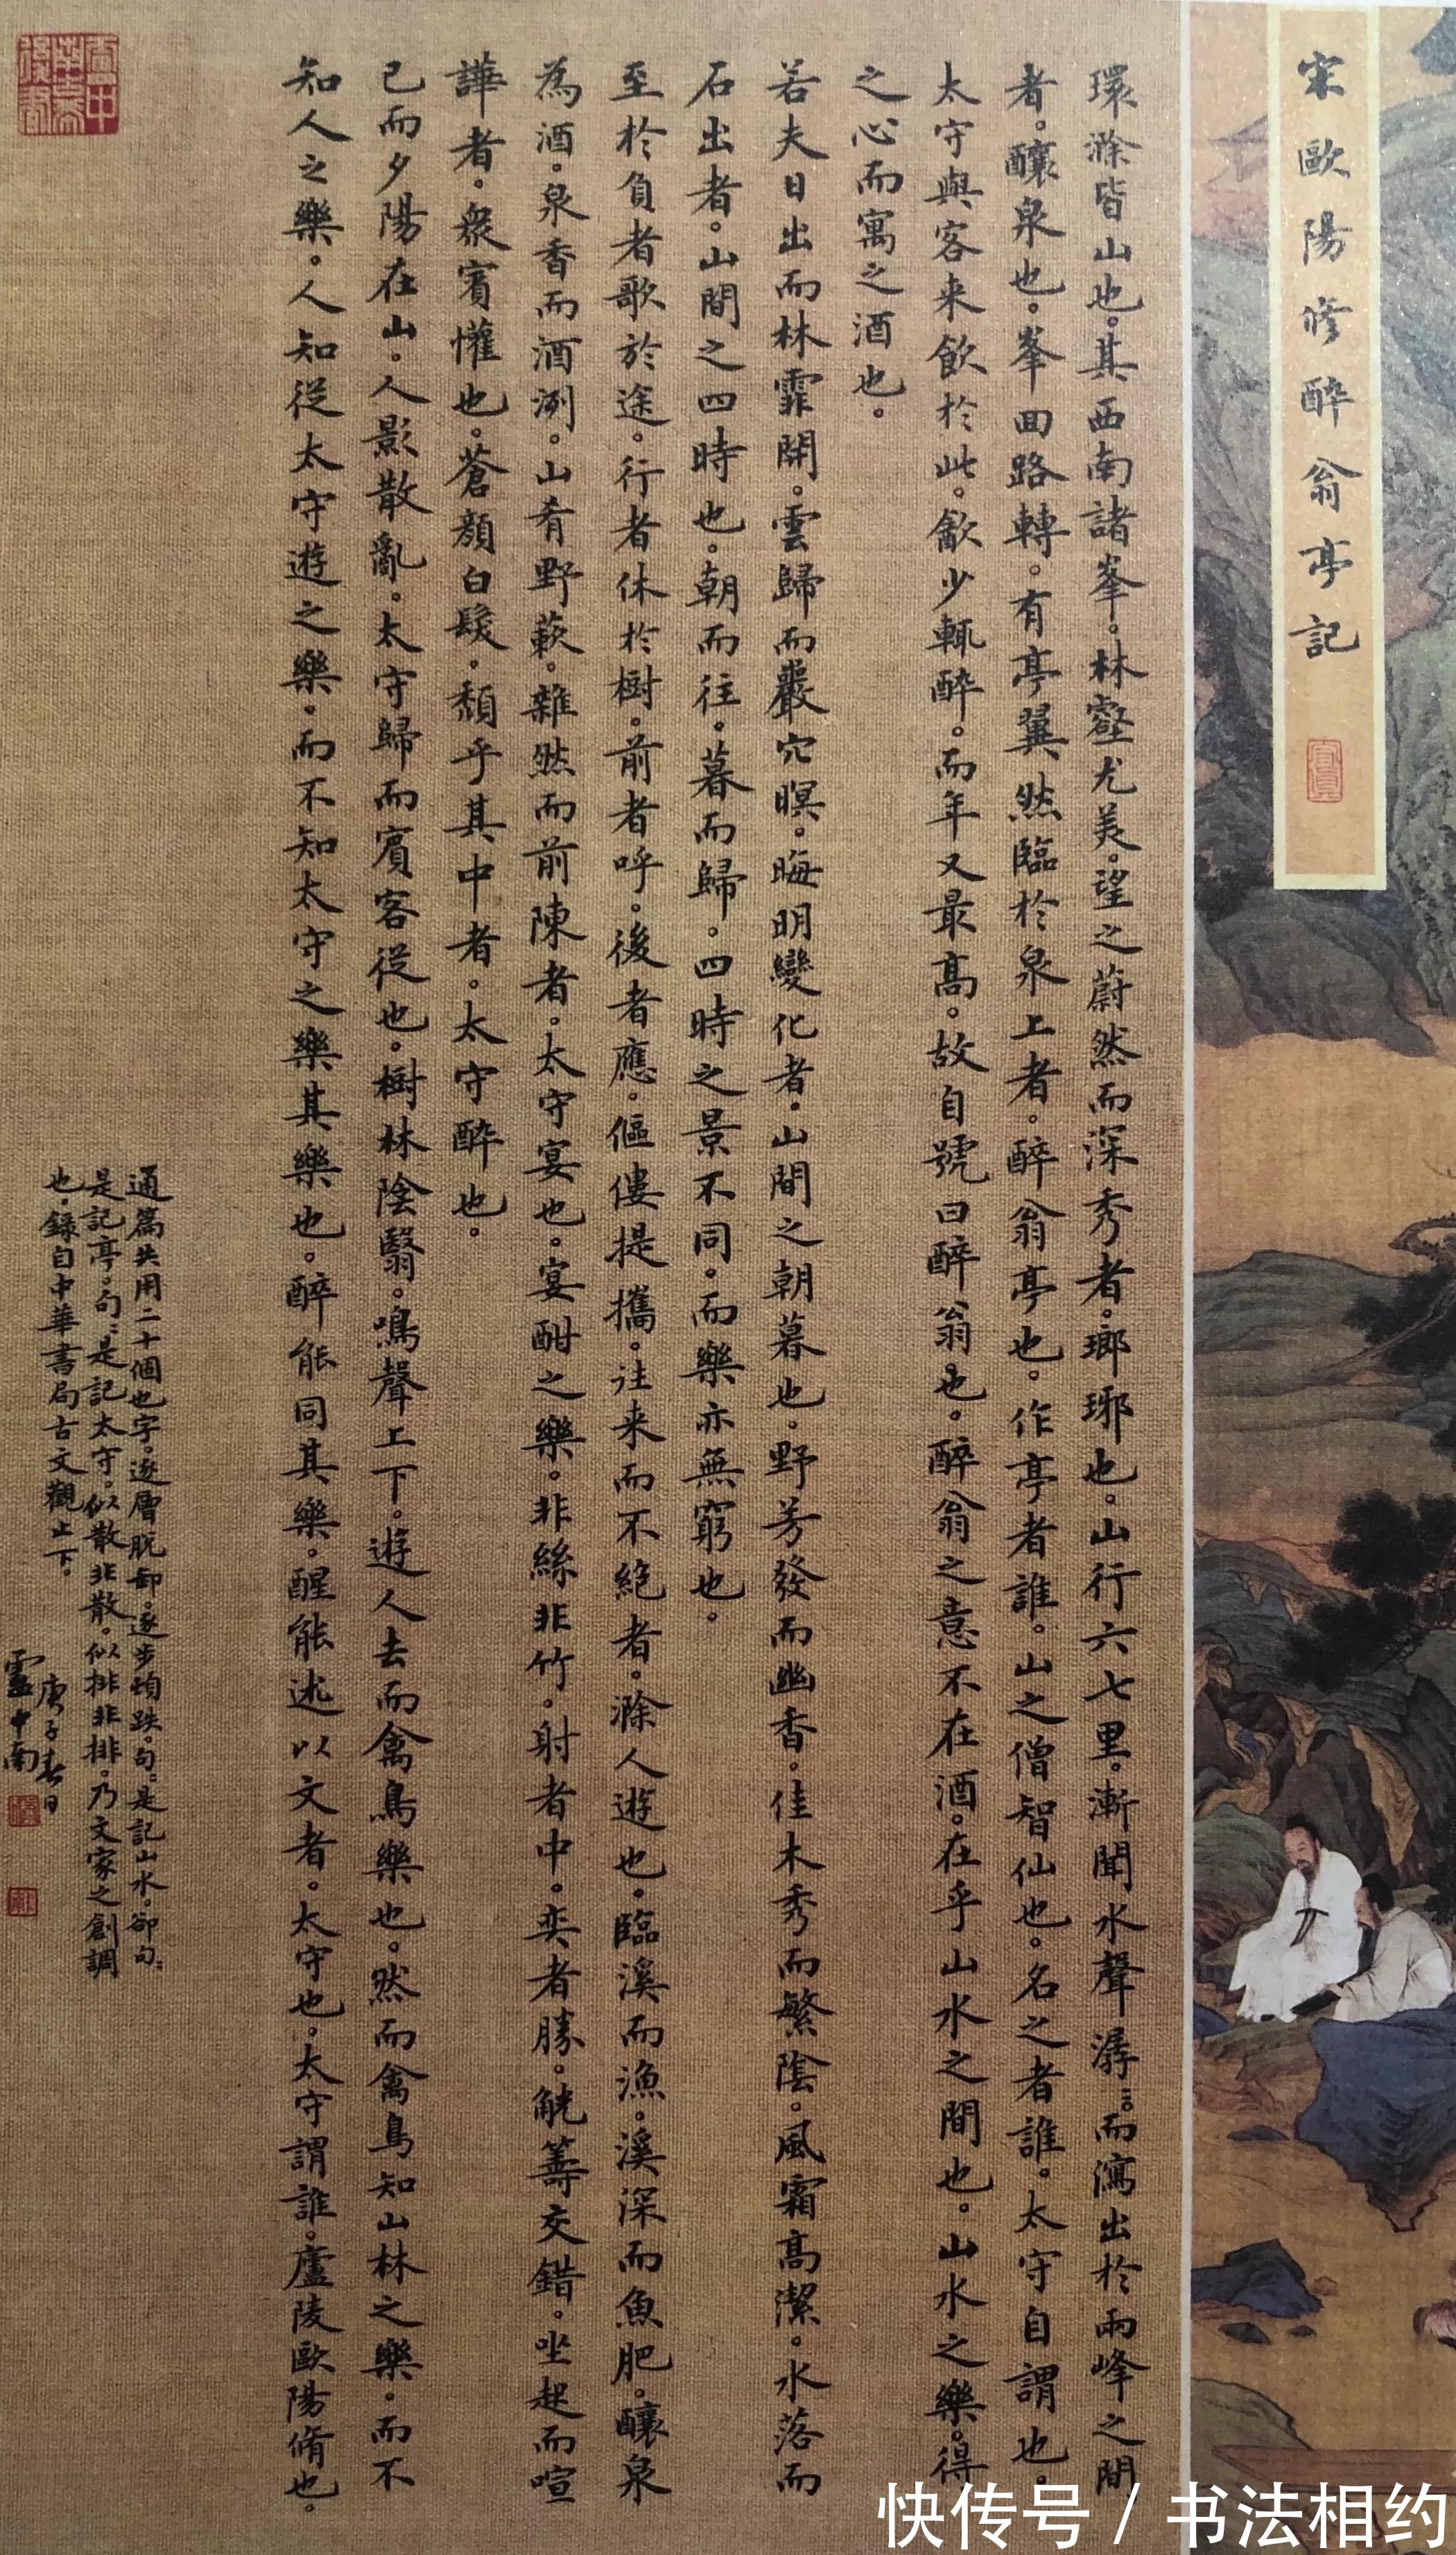 宋歐陽修醉翁亭記
環滁皆山也。其西南諸峯。林壑尤美。望之蔚然而深秀者。瑯琊也。山行六七里。漸聞水聲潺〻。而瀉出於兩峰之間
者。釀泉也。峯回路轉。有亭翼然臨於泉上者。醉翁亭也。作亭者誰。山之僧智仙也。名之者誰。太守自謂也。
太守與客来飲於此。飲少輒醉。而年又最高。故自號曰醉翁也。醉翁之意不在酒。在乎山水之間也。山水之樂。得
之心而寓之酒也。
若夫日出而林霏開。雲歸而巖穴暝。晦明變化者。山間之朝暮也。野芳發而幽香。佳木秀而繁陰。風霜高潔。水落而
石出者。山間之四時也。朝而往。暮而歸。四時之景不同。而樂亦無窮也。
至於負者歌於途。行者休於樹。前者呼。後者應。傴僂提攜。往来而不絕者。滁人遊也。臨溪而漁。溪深而魚肥。釀泉
為酒。泉香而酒洌。山肴野蔌。雜然而前陳者。太守宴也。宴酣之樂。非絲非竹。射者中。奕者勝。觥籌交錯。坐起而喧
譁者。衆賓懽也。蒼顏白髮。頹乎其中者。太守醉也。
已而夕陽在山。人影散亂。太守歸而賓客從也。樹林陰翳。鳴聲上下。遊人去而禽鳥樂也。然而禽鳥知山林之樂。而不
知人之樂。人知從太守遊之樂。而不知太守之樂其樂也。醉能同其樂。醒能述以文者。太守也。太守謂誰。廬陵歐陽脩也。
通篇共用二十個也字。逐層脫卸。逐步頓跌。句〻是記山水。卻句〻
是記亭。句〻是記太守。似散非散。似排非排。乃文家之創調
也。錄自中華書局古文觀止下。
庚子春日
盧中南
快传号/书法相约